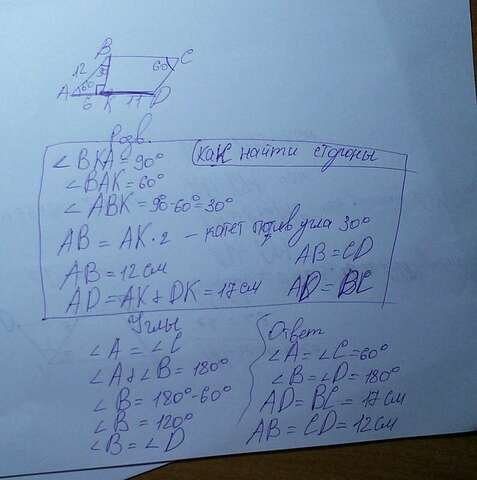 B
C
12
30
60
A
60
6
K
11
D
Розв.
∠BKA = 90° как найти стороны
∠BAK = 60°
∠ABK = 90-60° = 30°
AB = AK·2 – катет против угла 30°
AB = 12 см AB = CD
AD = AK + DK = 17 см AD = BC
Углы
∠A = ∠C
∠A + ∠B = 180°
∠B = 180° - 60°
∠B = 120°
∠B = ∠D
Ответ
∠A = ∠C = 60°
∠B = ∠D = 180°
AD = BC = 17 см
AB = CD = 12 см